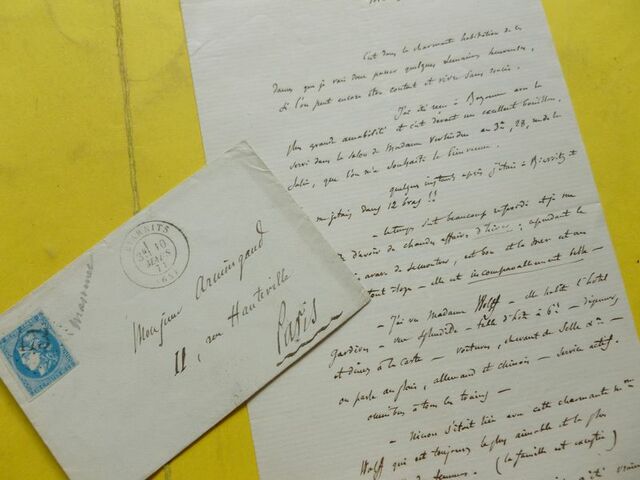 C'est dans la charmante habitation de ces
dames que je vais donc passer quelques semaines heureuses,
si l'on peut encore être content et vivre sans soucis.
J'ai été reçu à Bayonne avec la
plus grande amabilité et c'est devant un excellent bouillon,
servi dans le salon de Madame 28, rue de la
Salie, que l'on m'a souhaité la bienvenue.
quelques instants après j'étais à Biarritz et
me jetais dans 12 bras !!
le temps s'est beaucoup refroidi et je me
d'avoir de chauds effets d'hiver ; cependant le
est bon et la mer est au
elle est incomparablement belle —
— J'ai vu Madame Wolff — elle habite l'hôtel
Gardères — vue splendide — table d'hôte à 6 h ; déjeuners
et dîners à la carte — voitures, chevaux de selle &
on parle anglais, allemand et chinois — service actif.
omnibus à tous les trains —
— Ninon s'était liée avec cette charmante
Wolff qui est toujours la plus aimable et la plus
des femmes. (la famille est exceptée)
BIARRITZ
10
MARS
71
(64)
Monsieur Armingaud
11, rue Hauteville
Paris